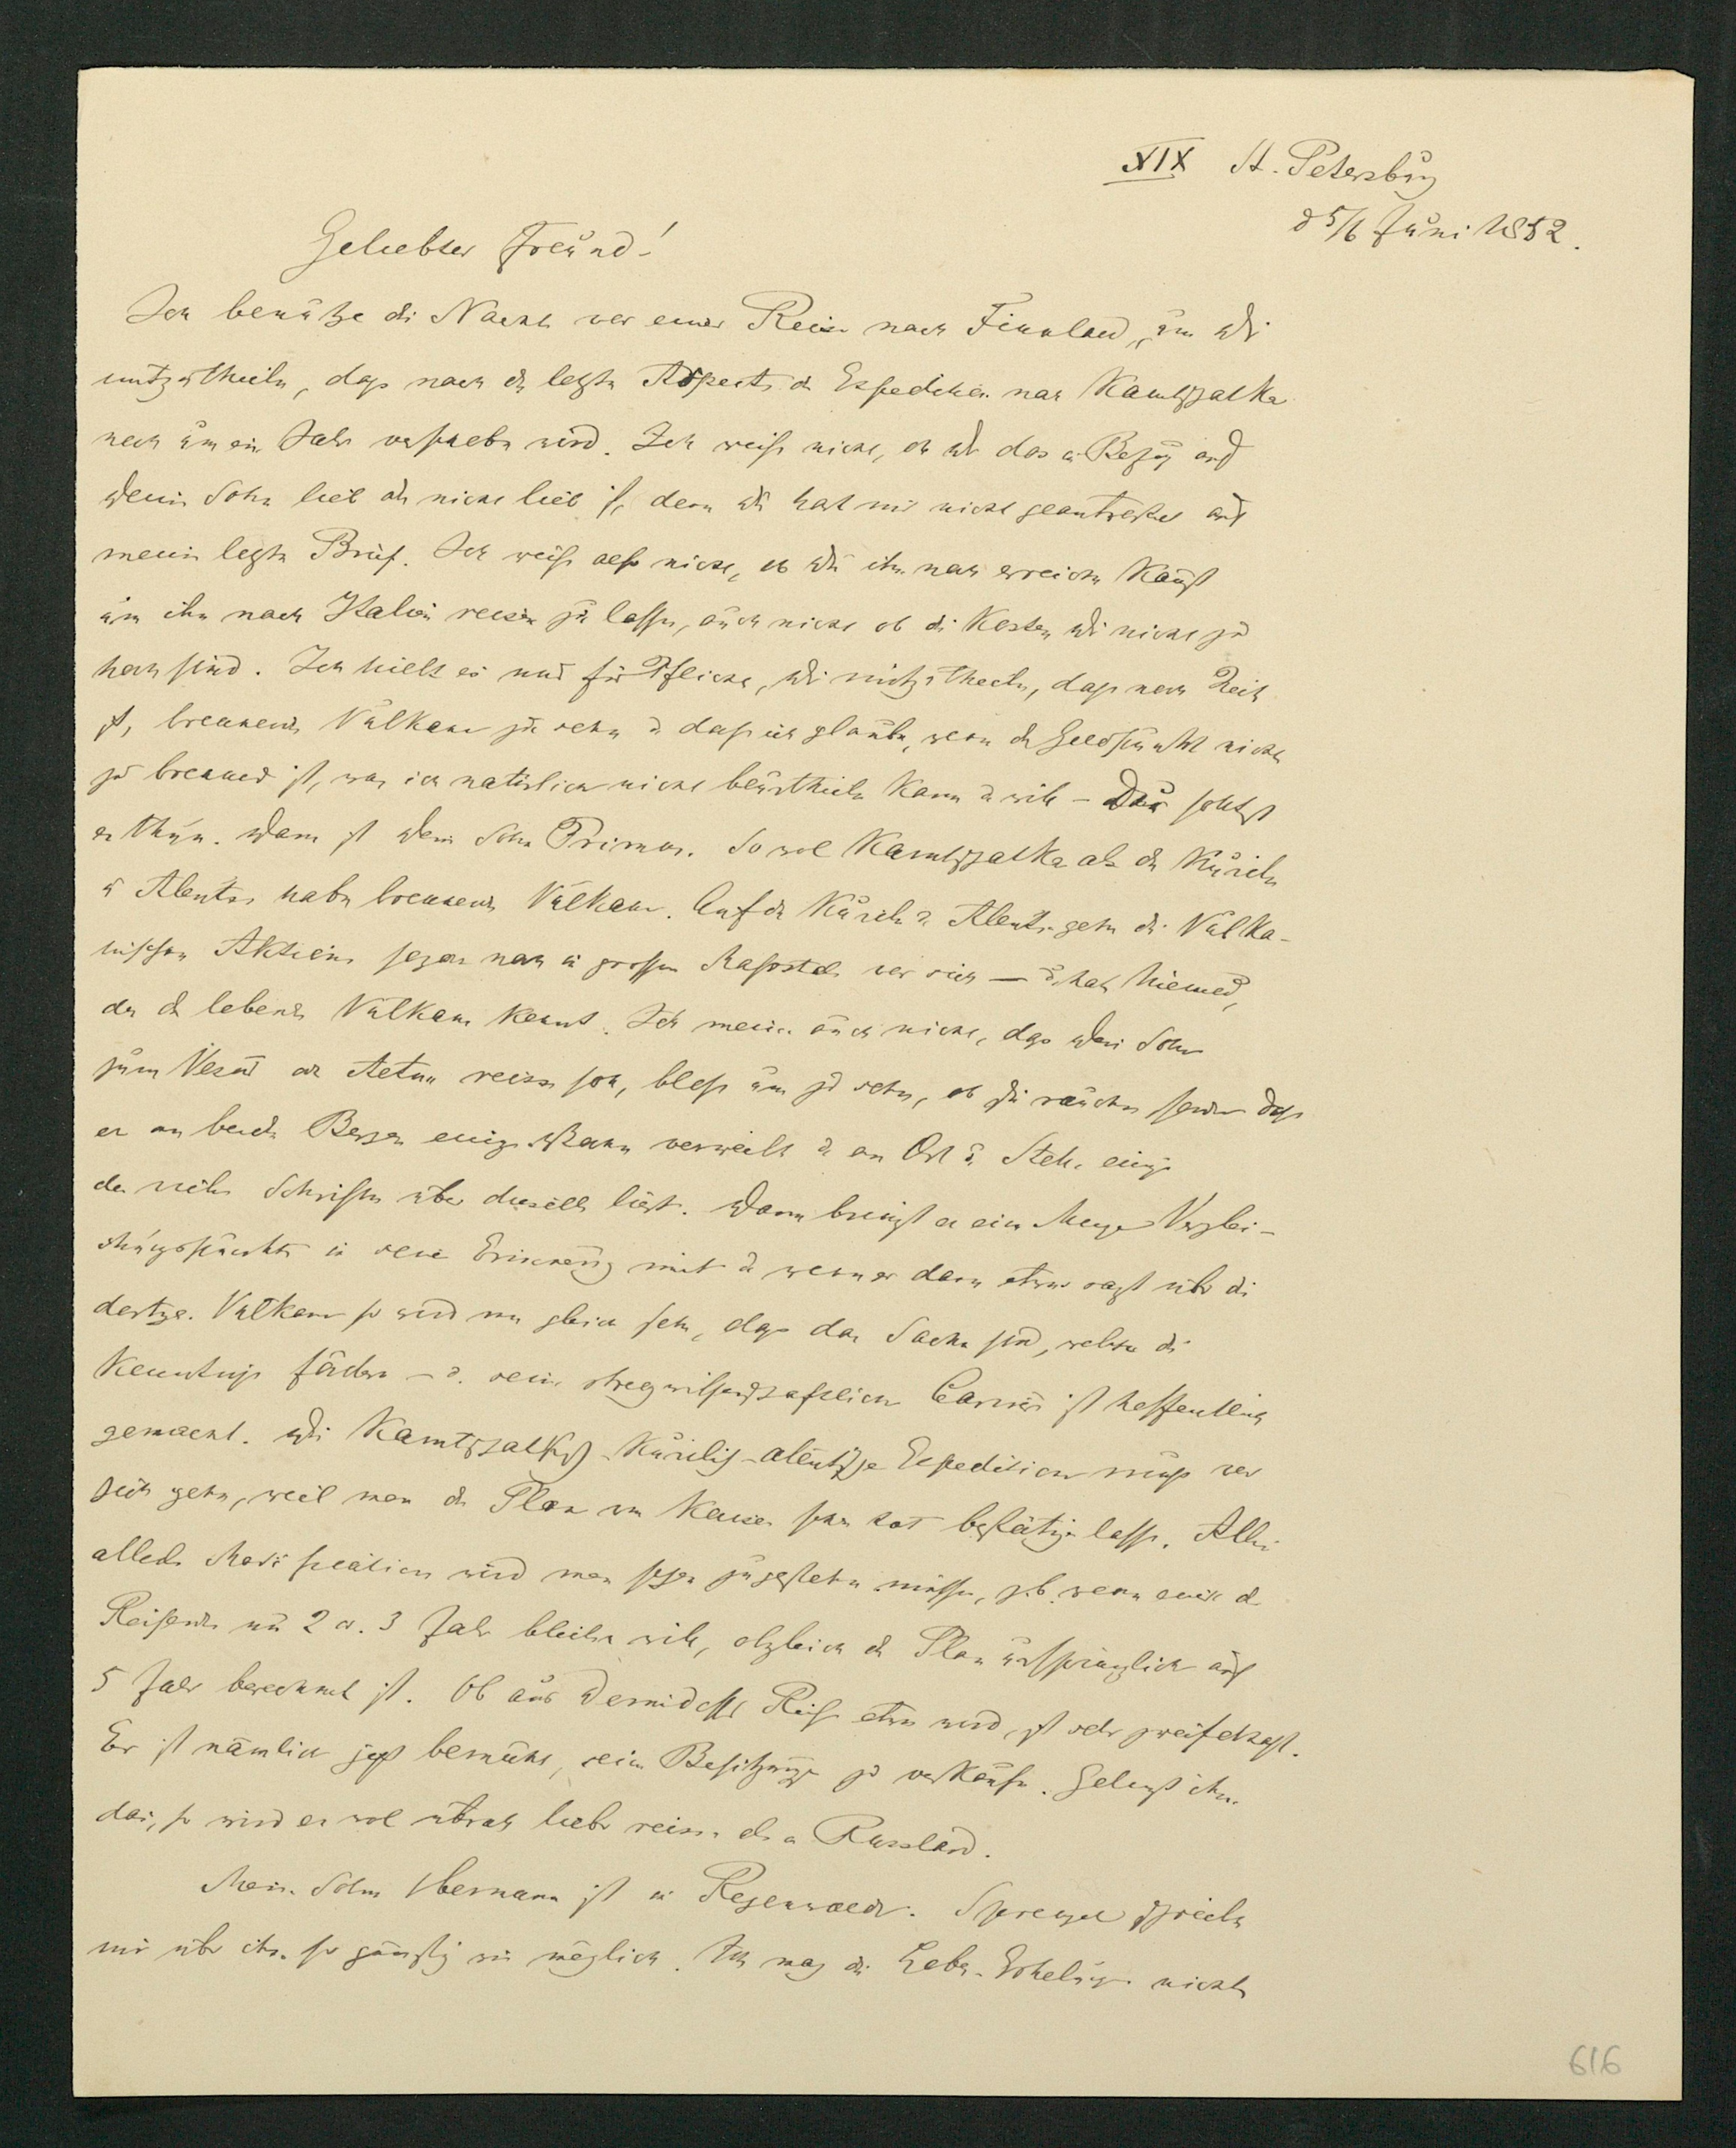 XIX St. Petersburg
d 5/6 Juni 1852.
Geliebter Freund!
Ich benutze die Nacht vor einer Reise nach Finnland, um Dir
mitzutheilen, dass nach den letzten Aspecten die Expedition nach Kamtschatka
noch um ein Jahr verschoben wird. Ich weiss nicht, ob Dir das in Bezug auf
Deinen Sohn lieb oder nicht lieb ist, denn Du hast mir nicht geantwortet auf
meinen letzten Brief. Ich weiss also nicht, ob Du ihn noch erreichen kannst
um ihn nach Italien reisen zu lassen, auch nicht ob die Kosten Dir nicht zu
hoch sind. Ich hielt es nur für Pflicht, Dir mitzutheilen, dass noch Zeit
ist, brennende Vulkane zu sehen u dass ich glaube, wenn der Geldpunkt nicht
zu brennend ist, was ich natürlich nicht beurtheilen kann u will – Du solltest
es thun. Dann ist Dein Sohn Primus. Sowol Kamtschatka als die Kurilen
u Aleuten haben brennende Vulkane. Auf den Kurilen u Aleuten gehen die Vulka-
nischen Aktionen sogar noch in grossem Massstabe vor sich – u. hat Niemand,
der die lebenden Vulkane kennt. Ich meine auch nicht, dass Dein Sohn
zum Vesuv oder Aetna reisen soll, bloss um zu sehen, ob sie rauchen sondern dass
er an beiden Bergen einige Wochen verweilt u an Ort u. Stelle einige
der vielen Schriften über dieselben liest. Dann bringt er eine Menge Verglei-
chungspunkte in seiner Erinnerung mit u wenn er dann etwas sagt über die
dortigen Vulkane so wird man gleich sehen, dass das Sachen sind, welche die
Kenntniss fördern – u. seine streng wissenschaftliche Carriere ist hoffentlich
gemacht. Die Kamtschatkisch-Kurilisch-aleutische Expedition muss vor
sich gehen, weil man den Plan vom Kaiser schon hat bestätigen lassen. Allein
allerlei Modificationen wird man schon zugestehen müssen, z.b. wenn einer der
Reisenden nur 2 od. 3 Jahr bleiben will, obgleich der Plan ursprünglich auf
5 Jahr berechnet ist. Ob aus Demidoffs Reise etwas wird, ist sehr zweifelhaft.
Er ist nämlich jetzt bemüht, seine Besitzungen zu verkaufen. Gelingt ihm
das, so wird er wol überall lieber reisen als in Russland.
Mein Sohn Hermann ist in Regenwalde. Sprengel schreibt
mir über ihn so günstig wie möglich. Ich mag die Lobes-Erhebungen nicht
616